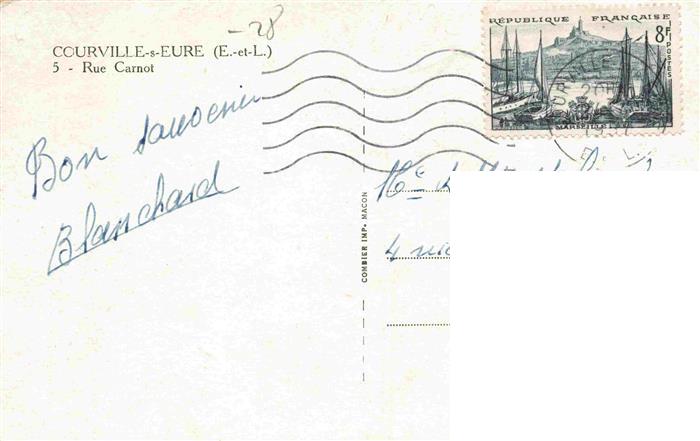 -28
COURVILLE-s-EURE (E.-et-L.)
5 - Rue Carnot
RÉPUBLIQUE FRANÇAISE
8F
POSTES
MARSEILLE
Bon souvenir
Blanchard
COMBIER IMP. MACON
4 rue